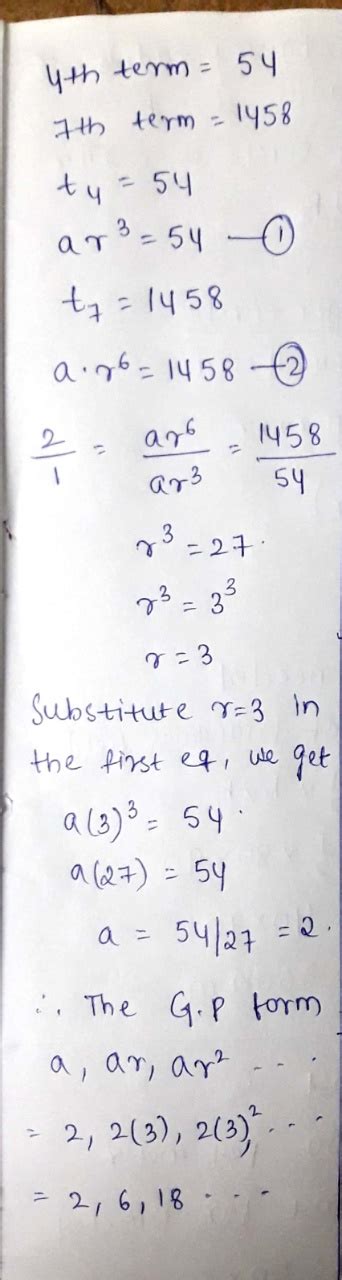 4th term = 54
7th term = 1458
t₄ = 54
ar³ = 54 —①
t₇ = 1458
a·r⁶ = 1458 —②
2/1 = ar⁶/ar³ = 1458/54
r³ = 27.
r³ = 3³
r = 3
Substitute r=3 in
the first eq, we get
a(3)³ = 54.
a(27) = 54
a = 54/27 = 2.
∴ The G.P form
a, ar, ar² - - .
= 2, 2(3), 2(3)², ...
= 2, 6, 18 - - -